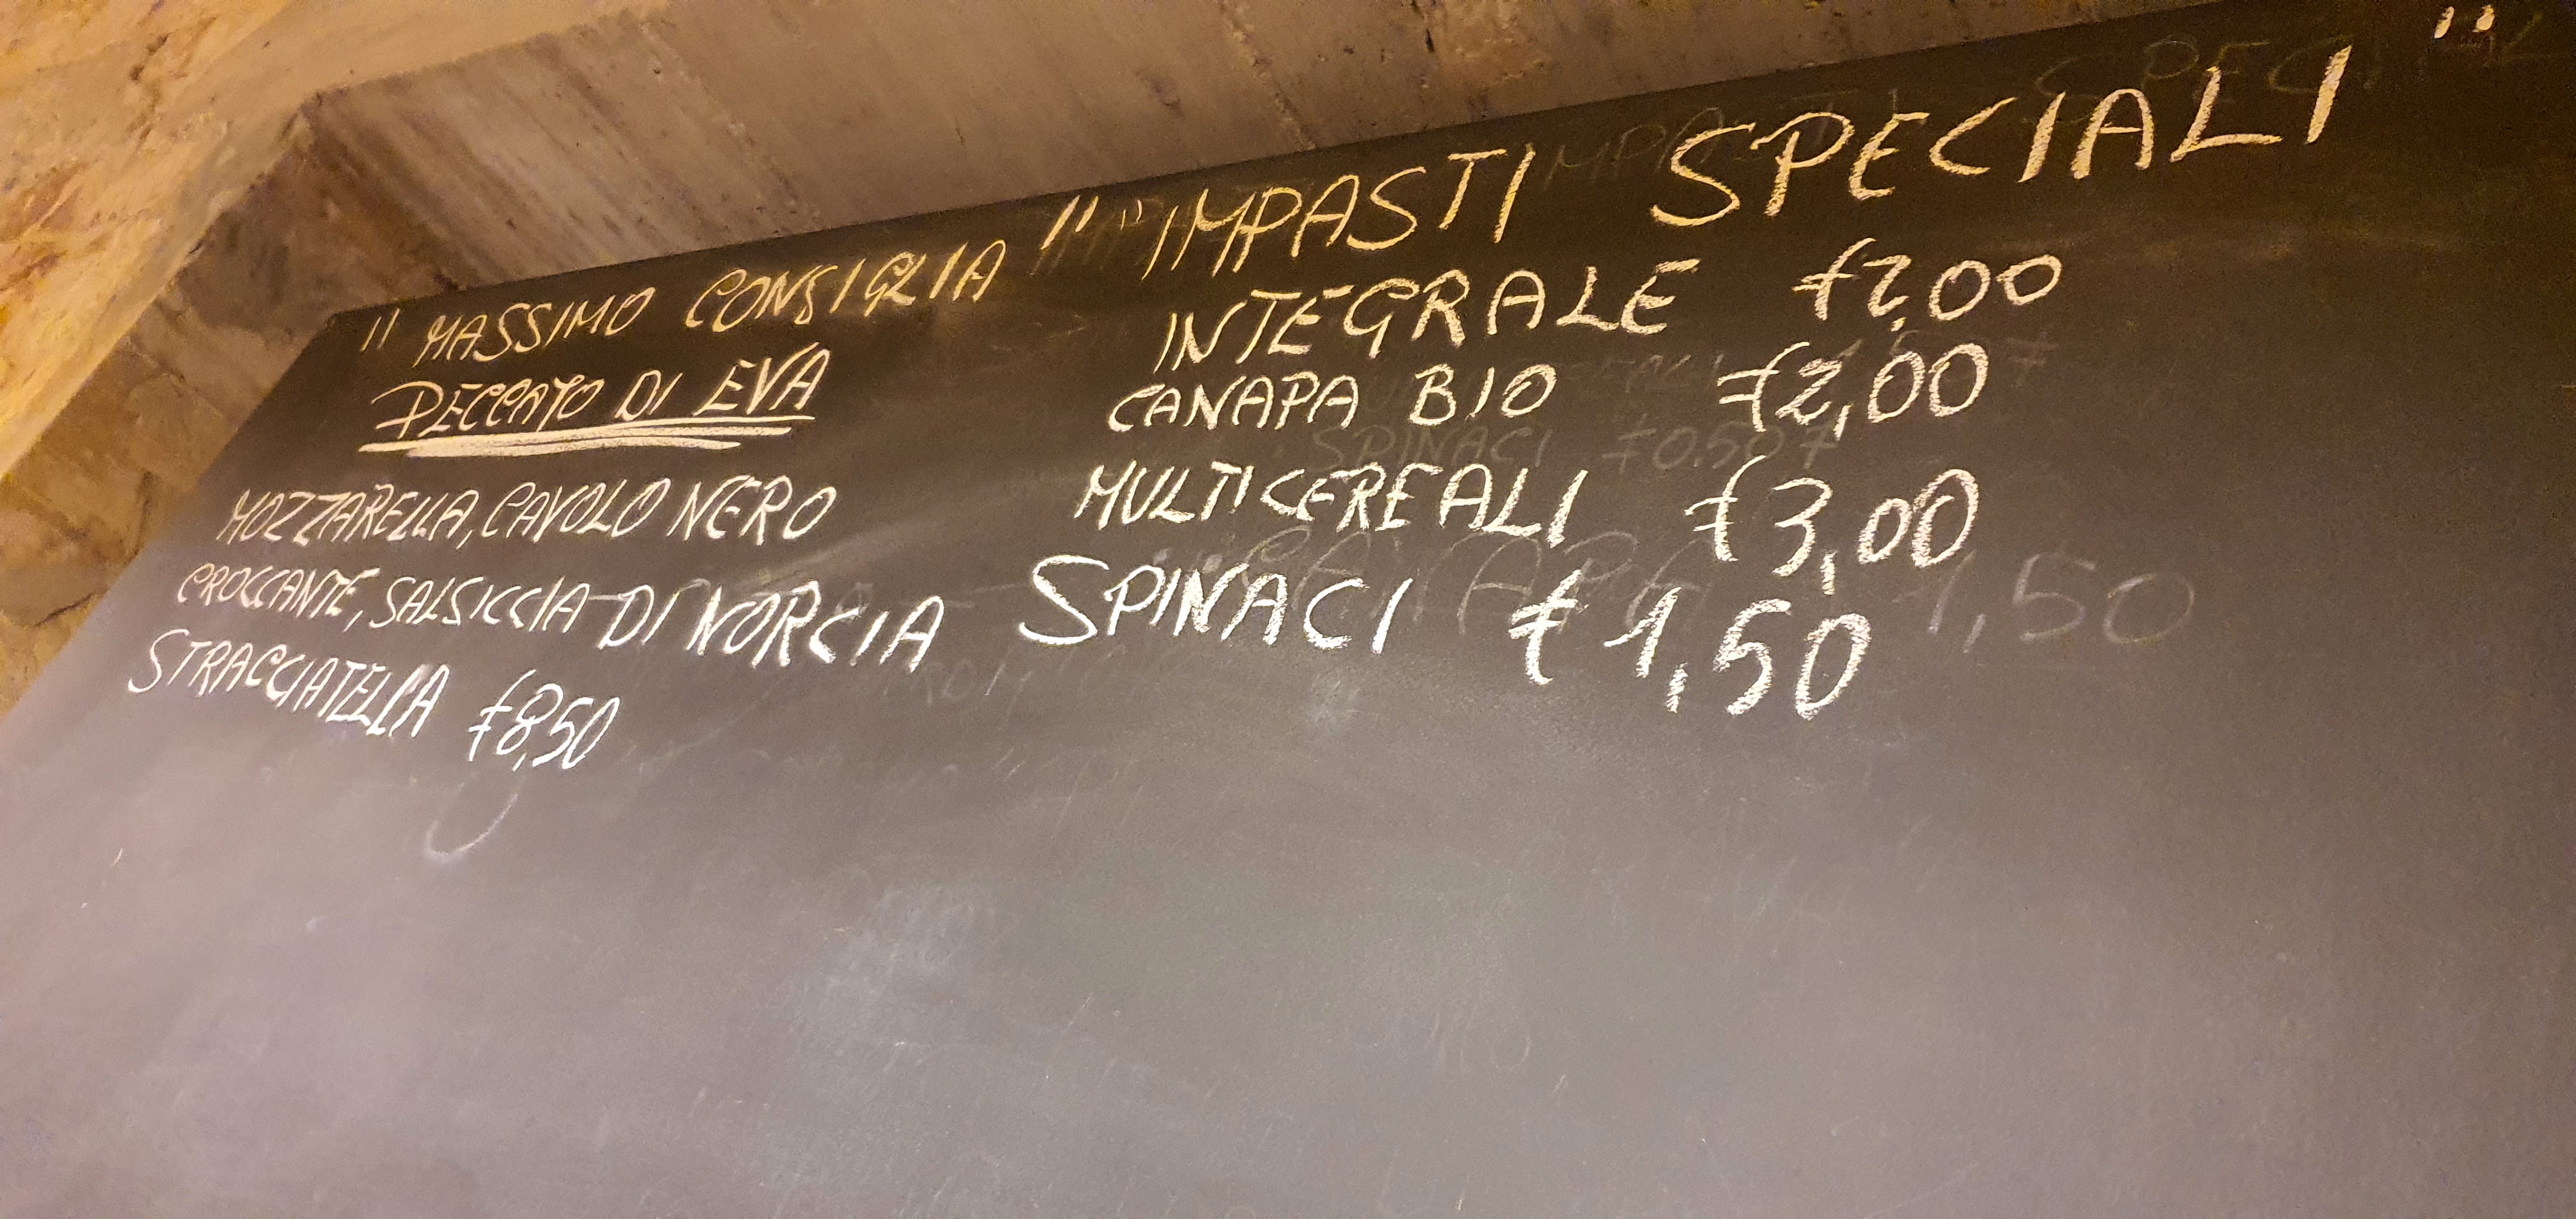 " MASSIMO CONSIGLIA "
PECCATO DI EVA
MOZZARELLA, CAVOLO NERO
CROCCANTE, SALSICCIA DI NORCIA
STRACCIATELLA €8,50
" IMPASTI SPECIALI "
INTEGRALE €2,00
CANAPA BIO €2,00
MULTICEREALI €3,00
SPINACI € 1,50